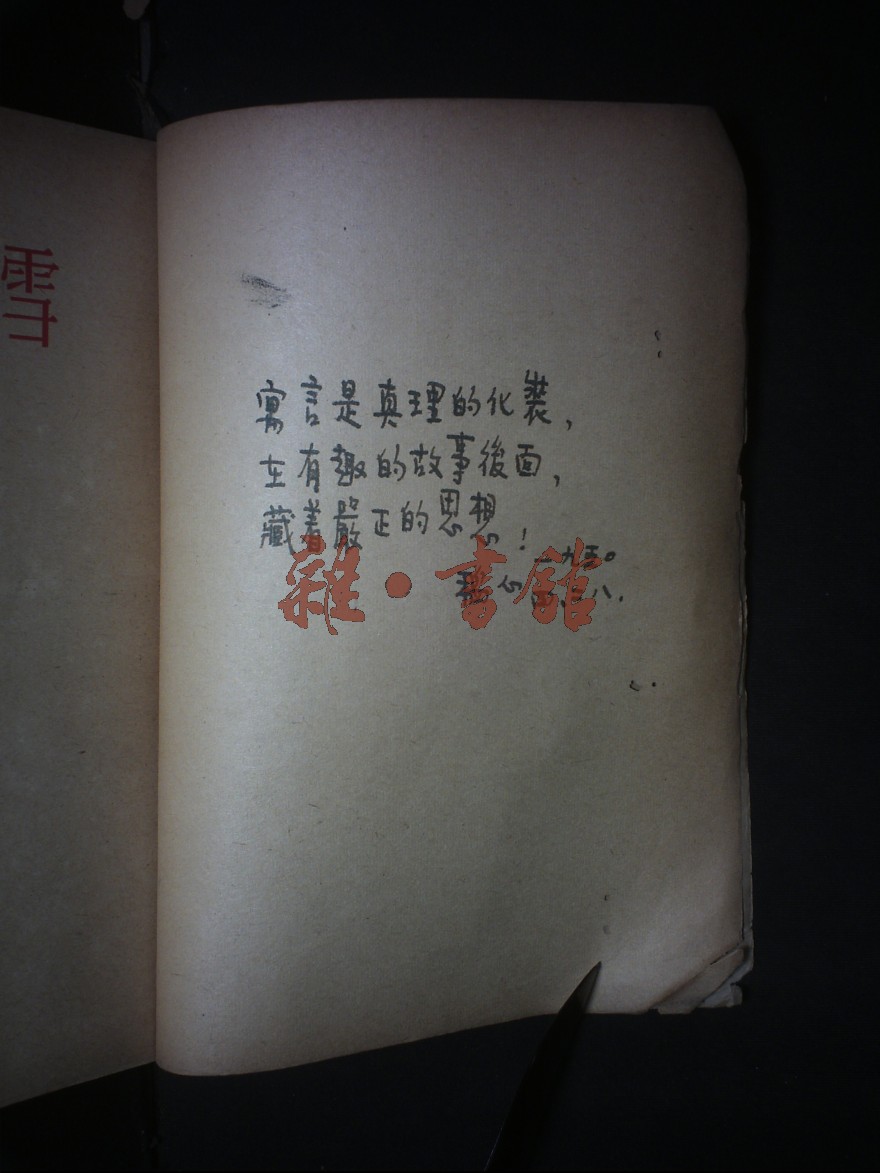 雪
寓言是真理的化裝,
在有趣的故事後面,
藏着嚴正的思想!
一九五〇
心
雜·書館